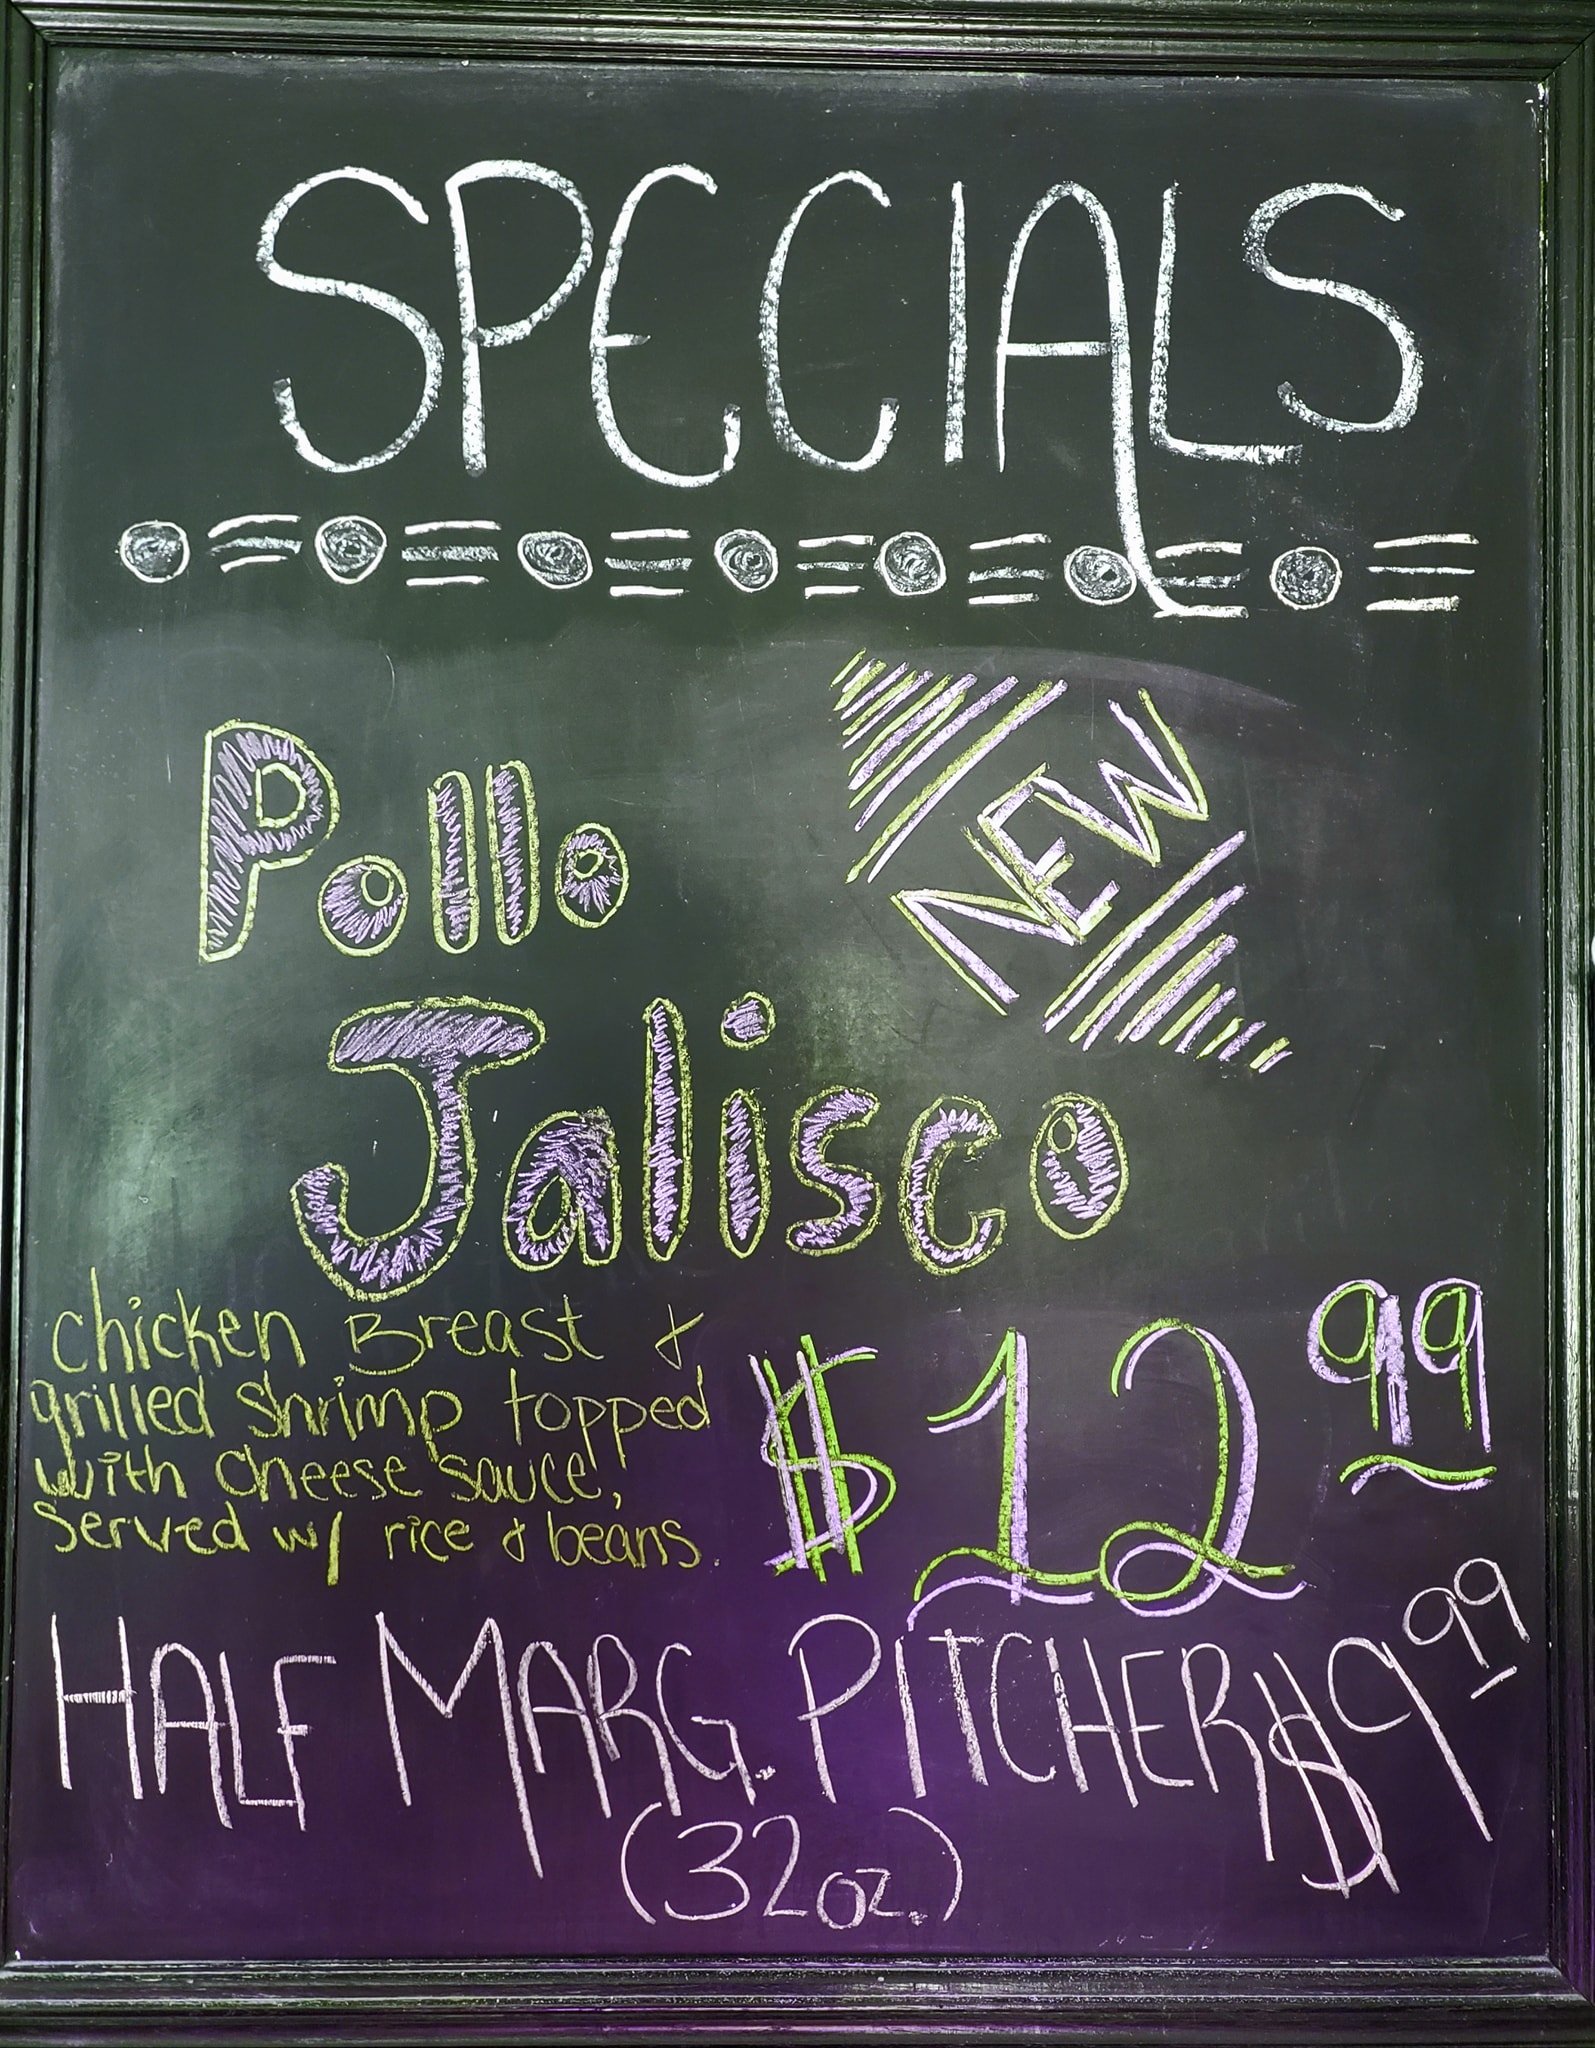 SPECIALS
Pollo
NEW
Jalisco
Chicken Breast &
grilled shrimp topped
with cheese sauce,
Served w/ rice & beans.
$12.99
HALF MARG. PITCHER $9.99
(32oz.)